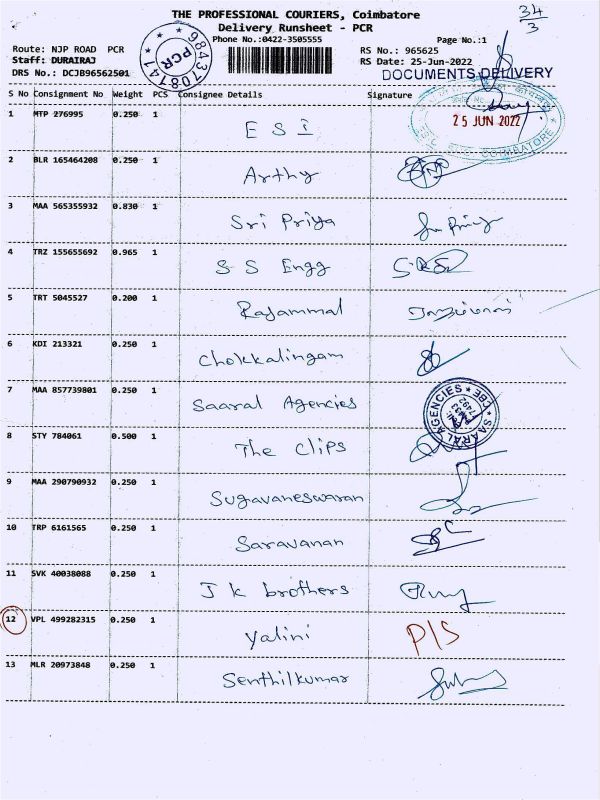 34/3
THE PROFESSIONAL COURIERS, Coimbatore
Delivery Runsheet - PCR
Phone No.:0422-3505555
Page No.:1
Route: NJP ROAD PCR
RS No.: 965625
Staff: DURAIRAJ
RS Date: 25-Jun-2022
DRS No.: DCJB96562501
9843708741
PCR
DOCUMENTS DELIVERY
S No Consignment No Weight PCS Consignee Details Signature
25 JUN 2022
COIMBATORE
1 MTP 276995 0.250 1 E S I
2 BLR 165464208 0.250 1 Arthy
3 MAA 565355932 0.830 1 Sri Priya
4 TRZ 155655692 0.965 1 S S Engg
5 TRT 5045527 0.200 1 Rajammal
6 KDI 213321 0.250 1 Chokkalingam
7 MAA 857739801 0.250 1 Saaral Agencies
SAARAL AGENCIES CBE
8 STY 784061 0.500 1 The Clips
9 MAA 290790932 0.250 1 Sugavaneswaran
10 TRP 6161565 0.250 1 Saravanan
11 SVK 40038088 0.250 1 J k brothers
12 VPL 499282315 0.250 1 Yalini P/S
13 MLR 20973848 0.250 1 Senthilkumar